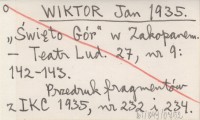 o WIKTOR Jan 1935.
„Święto Gór" w Zakopanem.
— Teatr Lud. 27, nr 9:
142-143.
Przedruk fragmentów
z IKC 1935, nr 232 i 234.